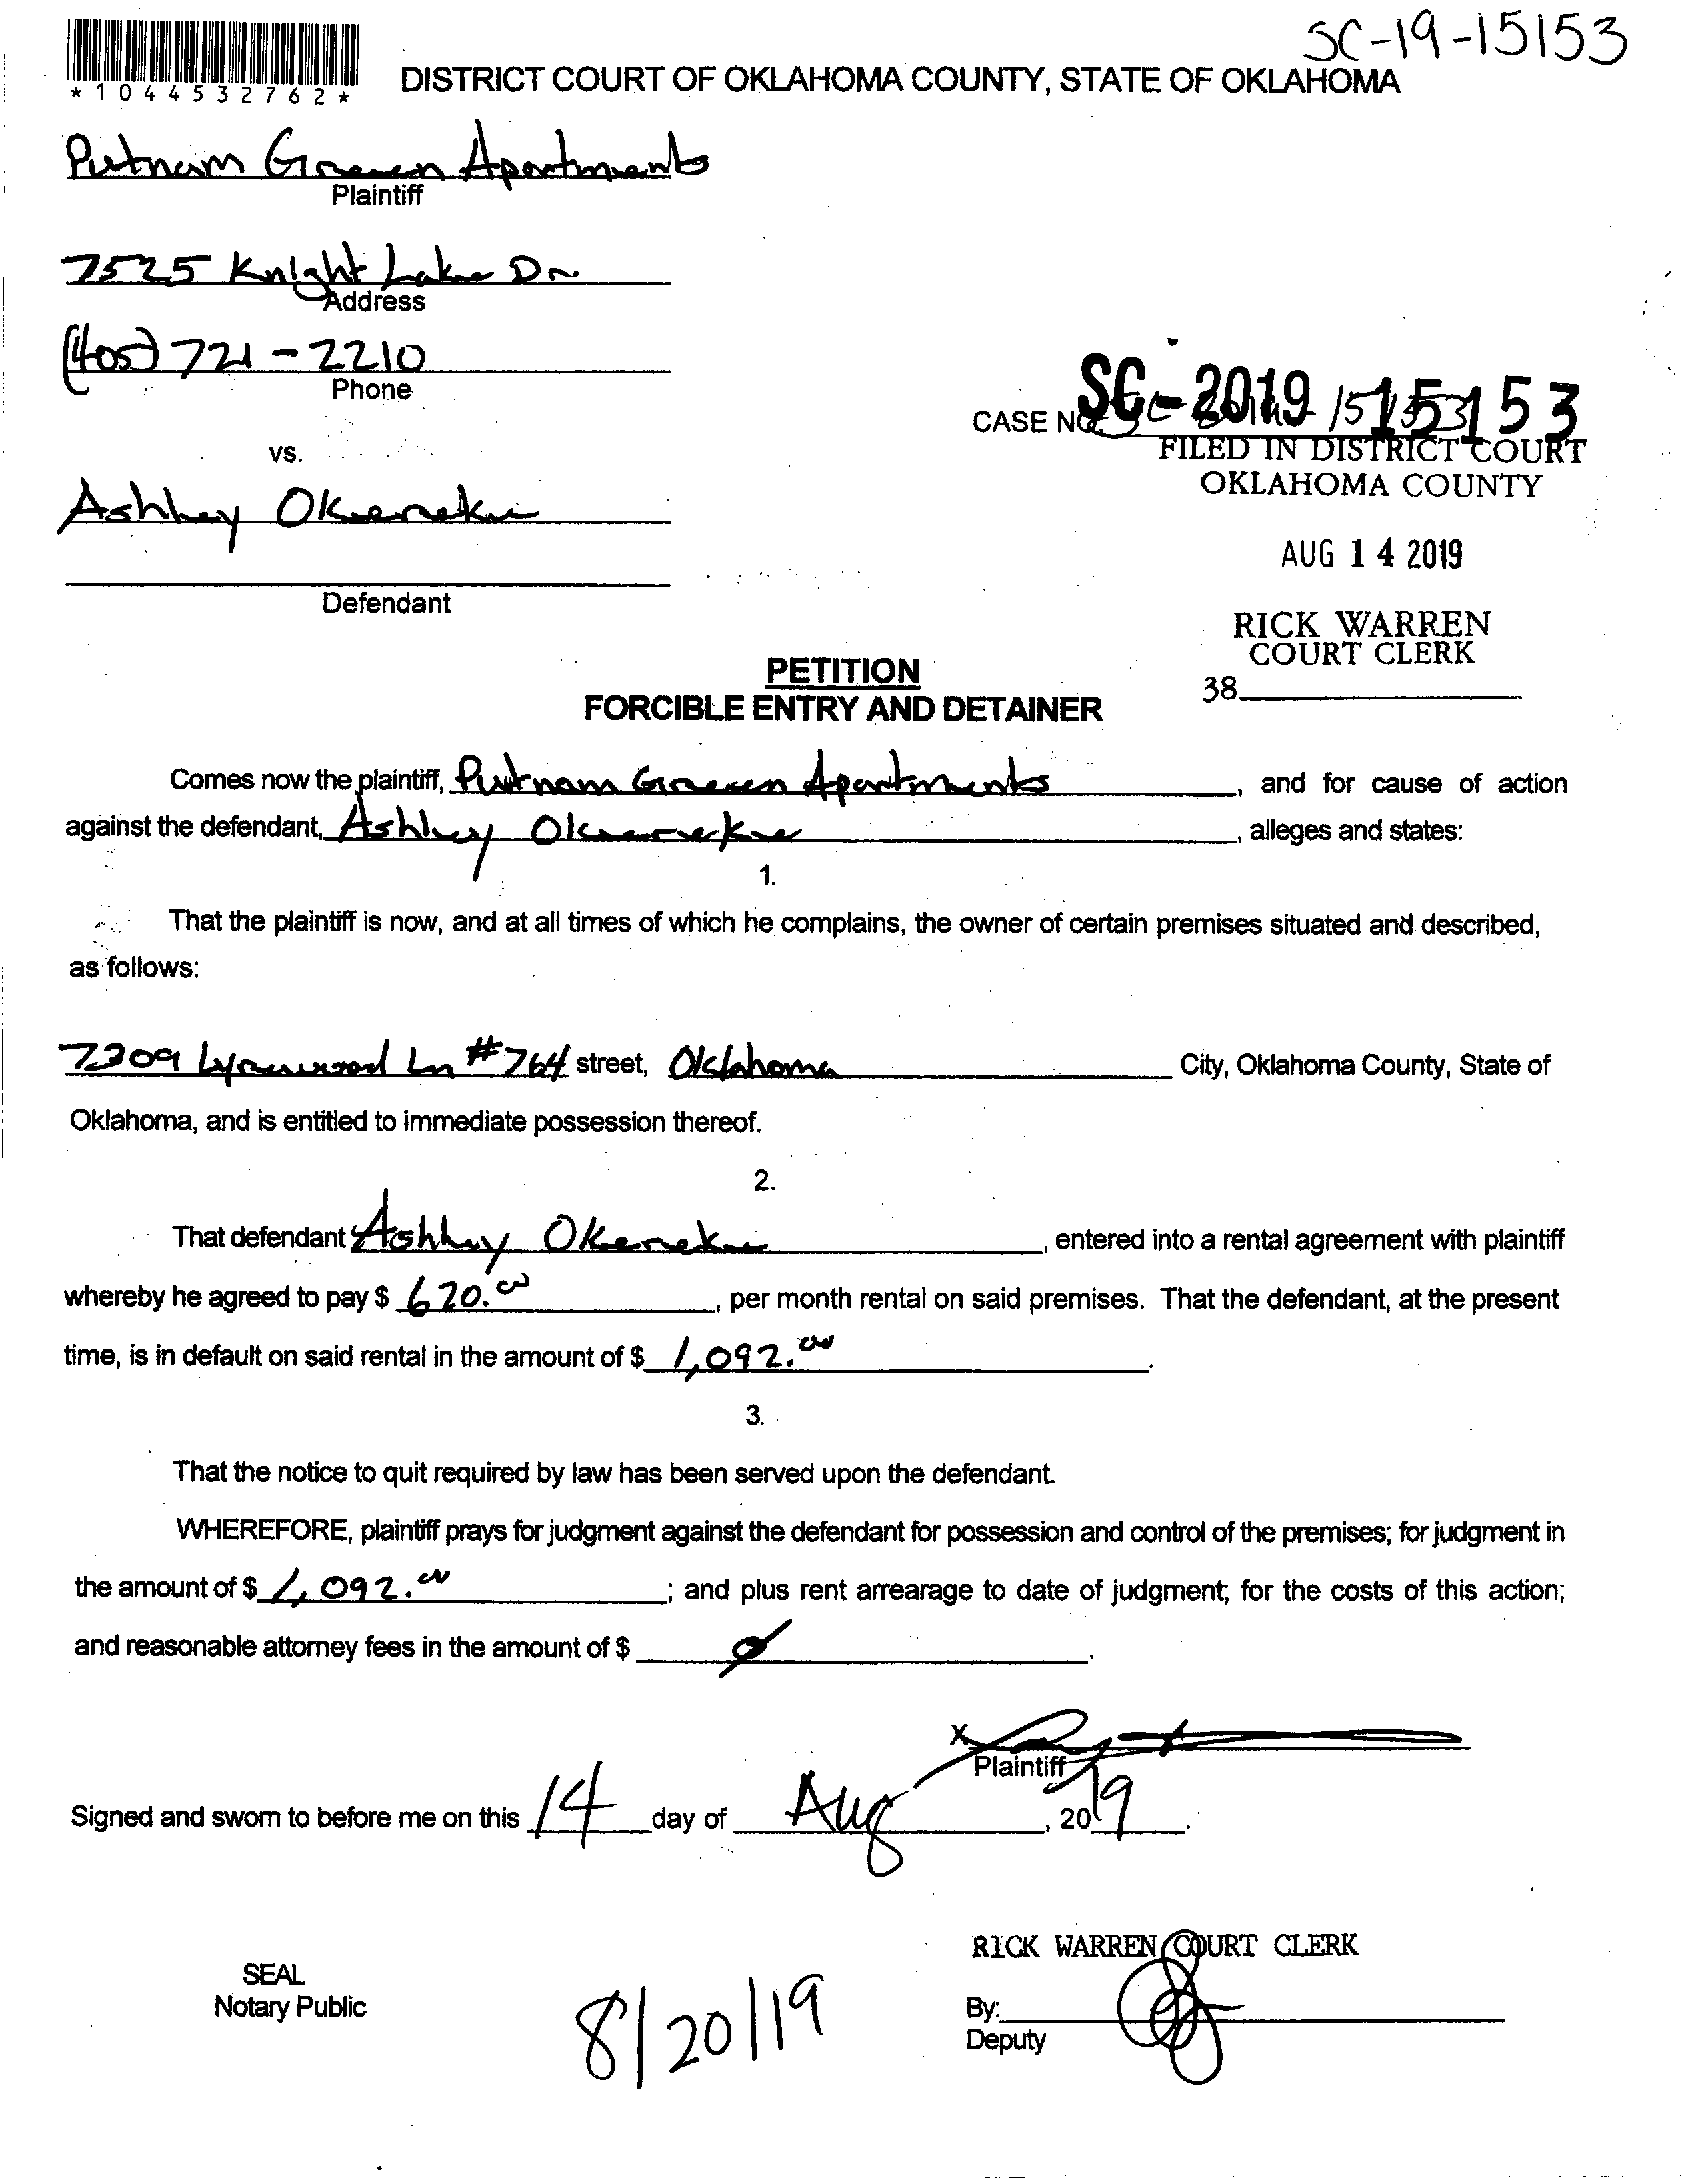 SC-19-15153
*1044532762*
DISTRICT COURT OF OKLAHOMA COUNTY, STATE OF OKLAHOMA
Putnam Green Apartments
Plaintiff
7525 Knight Lake Dr
Address
(405) 721-2210
Phone
CASE NO. SC-2019 15153
vs.
FILED IN DISTRICT COURT
OKLAHOMA COUNTY
Ashley
AUG 14 2019
Defendant
RICK WARREN
COURT CLERK
38
PETITION
FORCIBLE ENTRY AND DETAINER
Comes now the plaintiff, Putnam Green Apartments, and for cause of action
against the defendant, Ashley, alleges and states:
1.
That the plaintiff is now, and at all times of which he complains, the owner of certain premises situated and described,
as follows:
7309 Lynnwood Ln #764 street, Oklahoma City, Oklahoma County, State of
Oklahoma, and is entitled to immediate possession thereof.
2.
That defendant Ashley, entered into a rental agreement with plaintiff
whereby he agreed to pay $ 670.00, per month rental on said premises. That the defendant, at the present
time, is in default on said rental in the amount of $ 1,092.00.
3.
That the notice to quit required by law has been served upon the defendant.
WHEREFORE, plaintiff prays for judgment against the defendant for possession and control of the premises; for judgment in
the amount of $ 1,092.00; and plus rent arrearage to date of judgment; for the costs of this action;
and reasonable attorney fees in the amount of $ 0.
X
Plaintiff
Signed and sworn to before me on this 14 day of Aug, 2019.
RICK WARREN COURT CLERK
SEAL
Notary Public
8/20/19
By:
Deputy